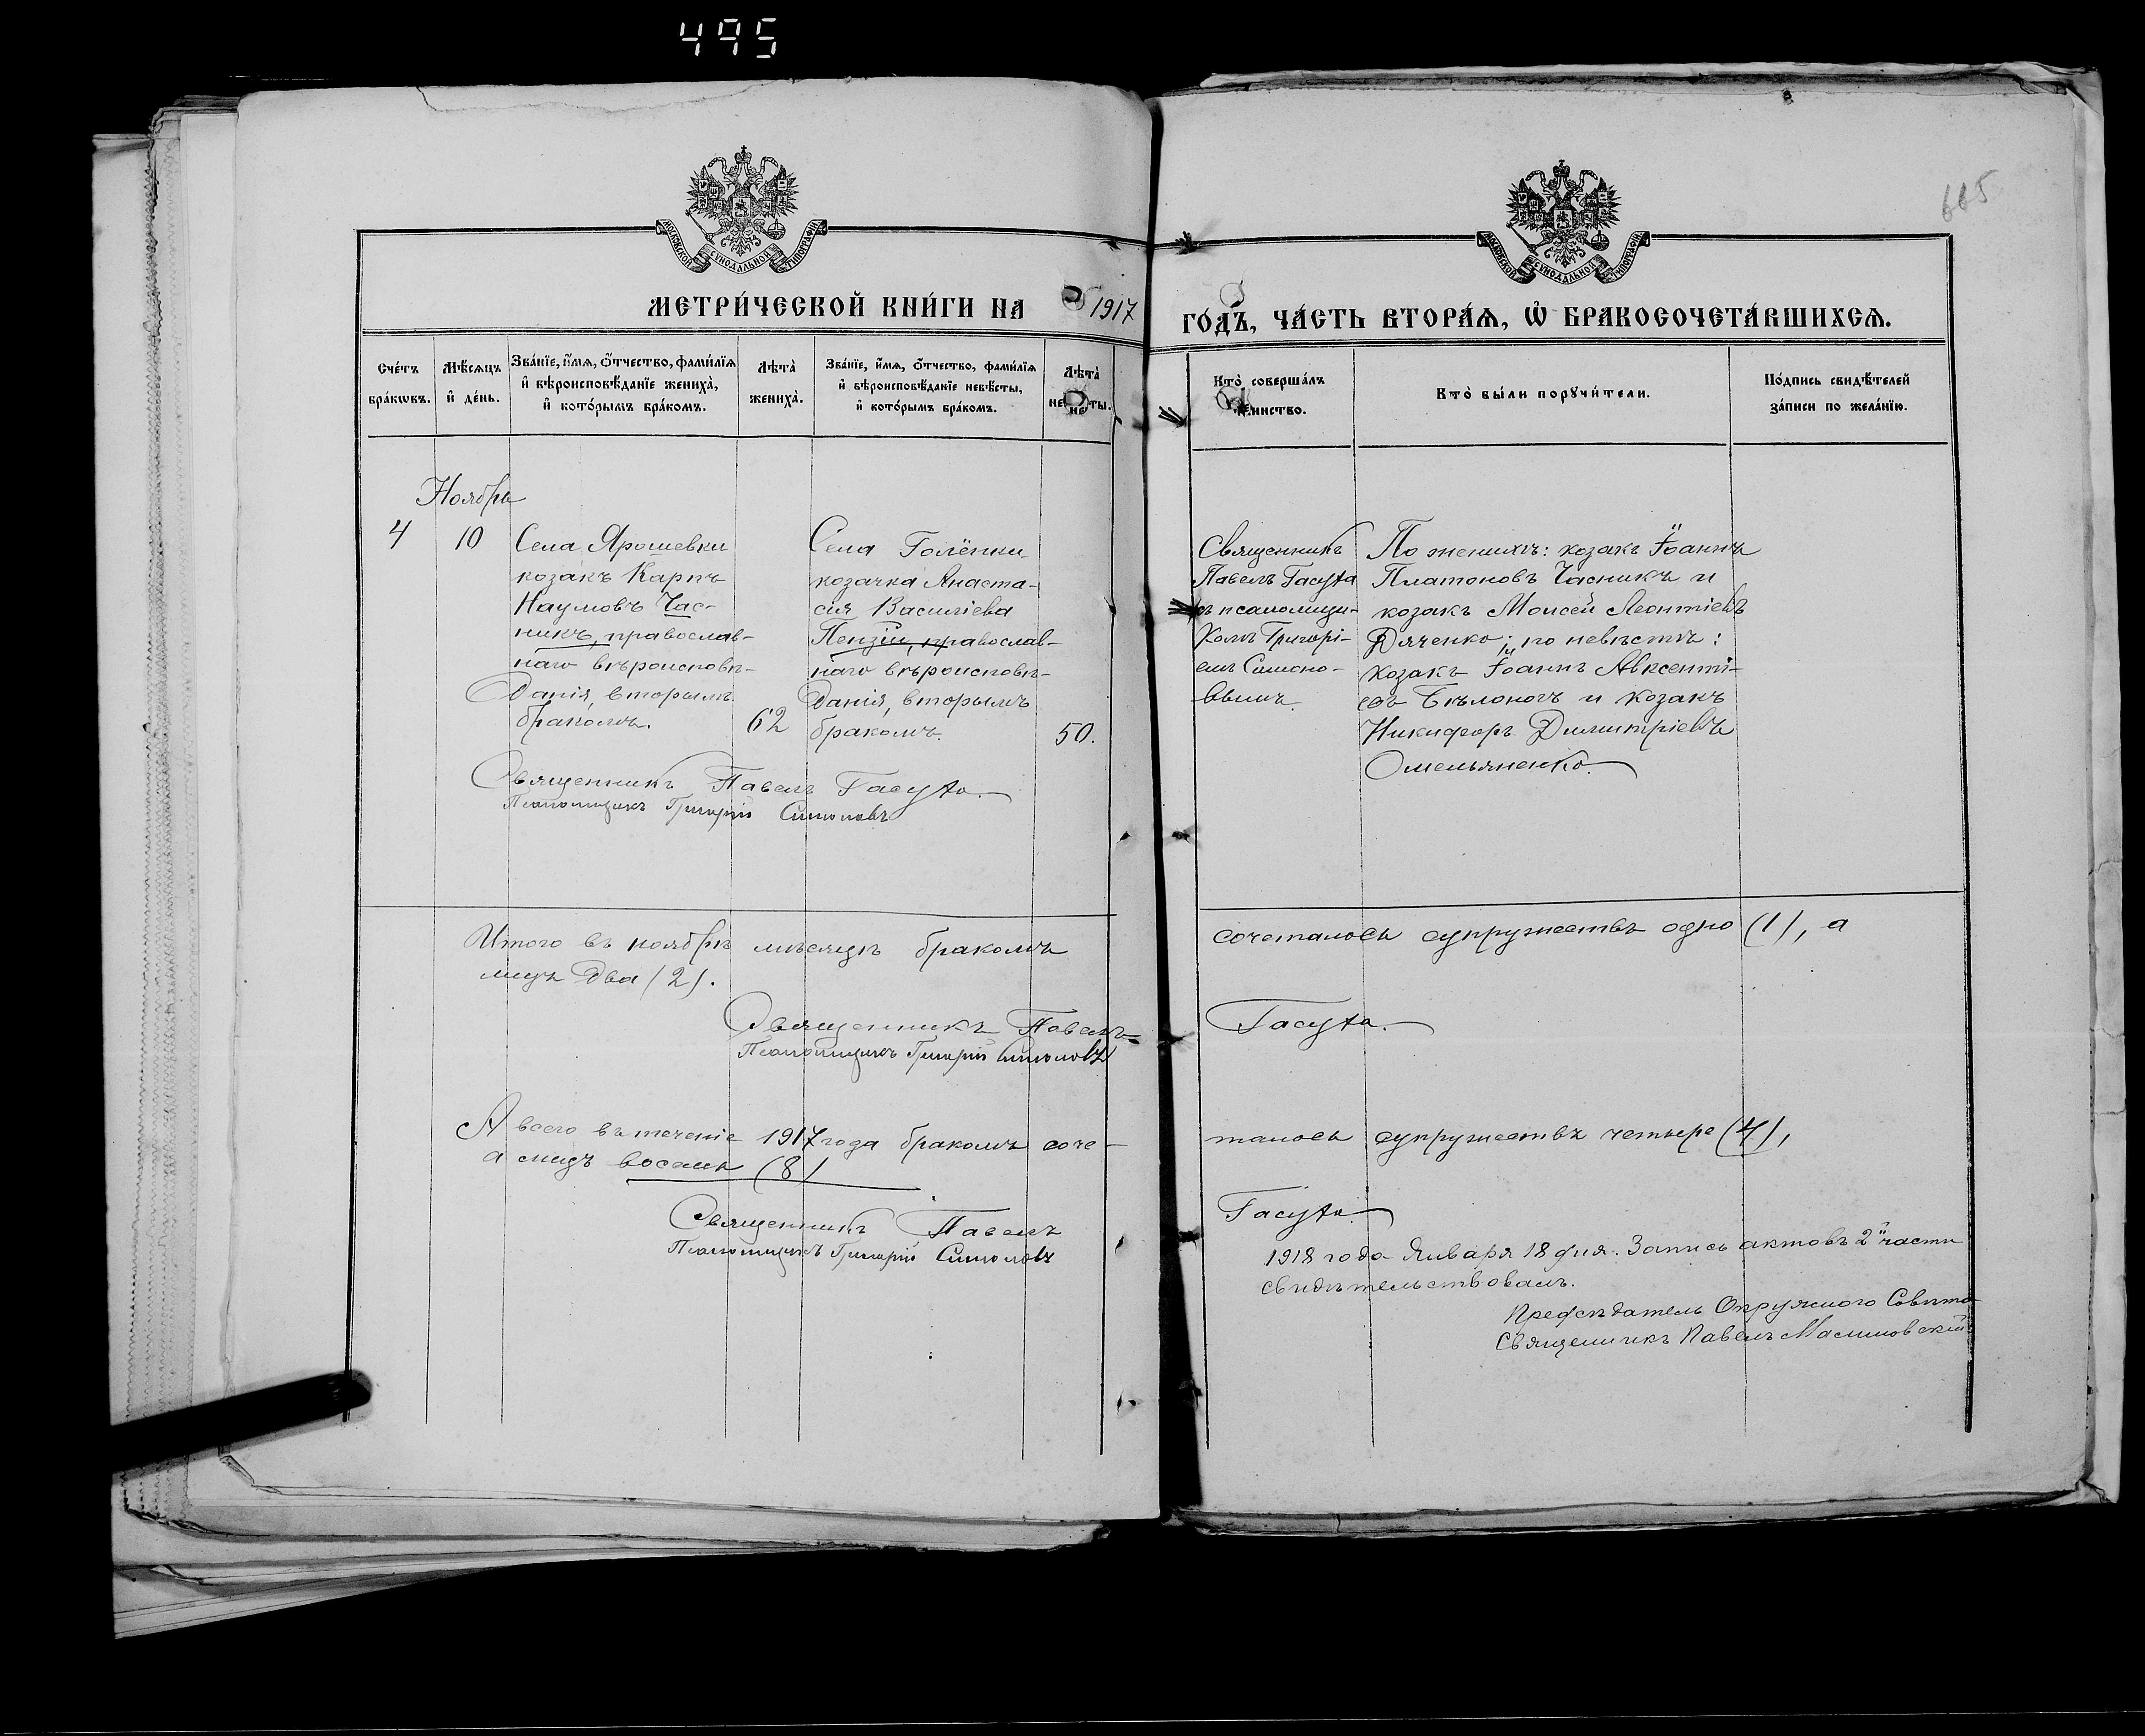 495
665
МОСКОВСКОЙ СѴНОДАЛЬНОЙ ТИПОГРАФІИ
МОСКОВСКОЙ СѴНОДАЛЬНОЙ ТИПОГРАФІИ
МЕТРИ́ЧЕСКОЙ КНИ́ГИ НА 1917
ГО́ДЪ, ЧА́СТЬ ВТОРА́Ѧ, Ѡ҆ БРАКОСОЧЕТА́ВШИХСѦ.
Сче́тъ бра́кѡвъ.
Мѣ́сѧцъ и҆ де́нь.
Зва́нїе, и҆́мѧ, ѻ҆́тчество, фами́лїѧ и҆ вѣроисповѣ́данїе жениха̀, и҆ кото́рымъ бра́комъ.
Лѣта̀ жениха̀.
Зва́нїе, и҆́мѧ, ѻ҆́тчество, фами́лїѧ и҆ вѣроисповѣ́данїе невѣ́сты, и҆ кото́рымъ бра́комъ.
Лѣта̀
Кто̀ соверша́лъ
Кто̀ бы́ли порꙋчи́тели.
По́дпись свидѣ́телей за́писи по жела́нїю.
Ноябрь
4
10
Села Ярошевки
козакъ Карпъ
Наумовъ Час-
никъ, православ-
наго вѣроисповѣ-
данія, вторымъ
бракомъ.
62
Села Голёнки
козачка Анаста-
сія Василіева
Пензій, православ-
наго вѣроисповѣ-
данія, вторымъ
бракомъ.
50.
Священникъ
Павелъ Гасуха
съ псаломщи-
комъ Григорі-
емъ Симоно-
вымъ.
По женихѣ: козакъ Іоаннъ
Платоновъ Часникъ и
козакъ Моисей Леонтіевъ
Дяченко; по невѣстѣ:
козакъ Іоаннъ Авксенті-
евъ Бѣлоногъ и козакъ
Никифоръ Димитріевъ
Омельяненко.
Священникъ Павелъ Гасуха.
Псаломщикъ Григорій Симоновъ
Итого въ ноябрѣ мѣсяцѣ бракомъ
сочеталось супружествъ одно (1), а
лицъ два (2).
Священникъ Павелъ
Гасуха.
Псаломщикъ Григорій Симоновъ
А всего въ теченіе 1917 года бракомъ соче-
талось супружествъ четыре (4),
а лицъ восемь (8)
Священникъ Павелъ
Гасуха.
Псаломщикъ Григорій Симоновъ
1918 года Января 18 дня. Запись актовъ 2й части
свидѣтельствовалъ.
Предсѣдатель Окружного Совѣта
Священникъ Павелъ Малиновскій